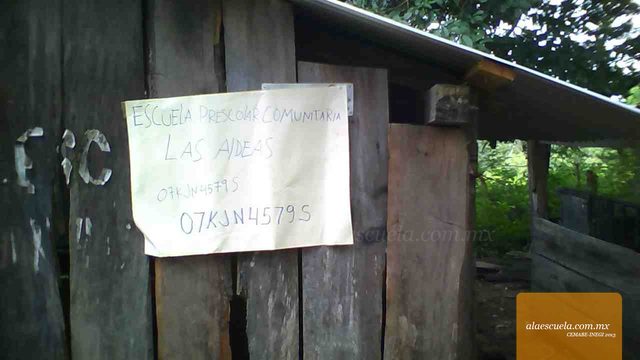 ESCUELA PRESCOLAR COMUNITARIA
LAS AIDEAS
07KJN4579S
07KJN4579S
alaescuela.com.mx
CEMABE-INEGI 2013